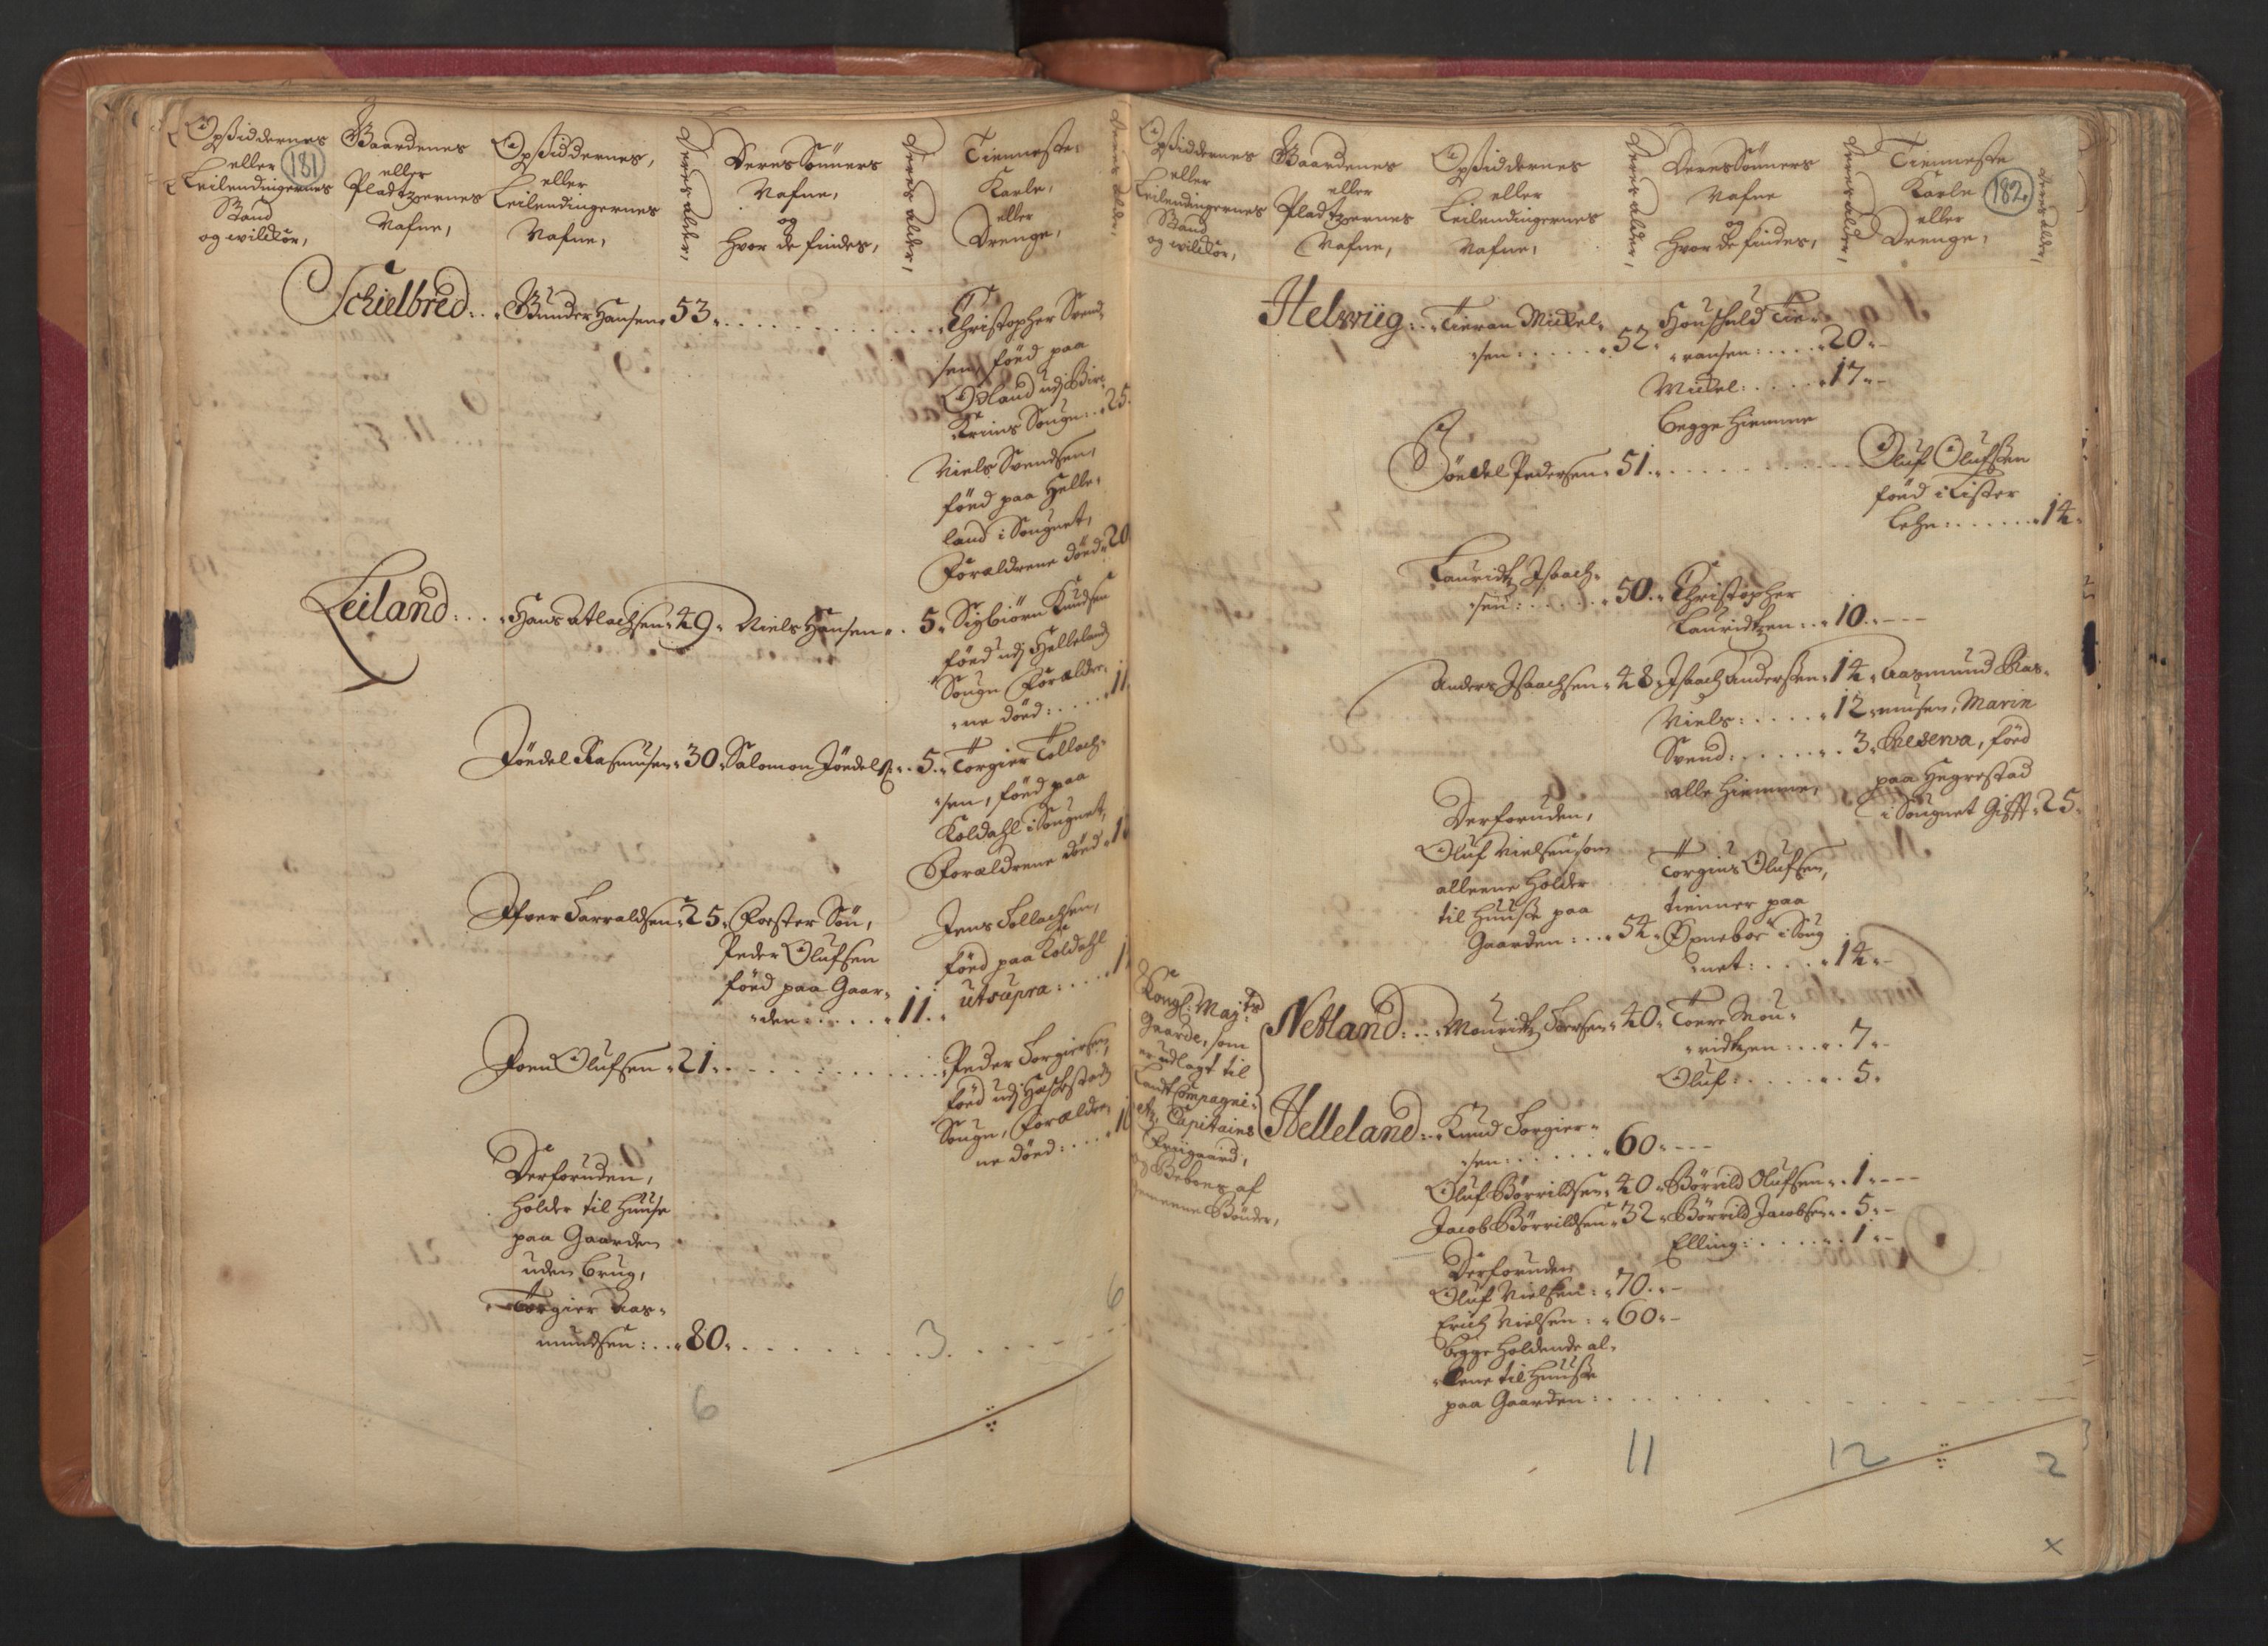 Opsiddernes
eller
Leilendingernes
Stand
og wilckor,
181
Gaardenes
eller
Pladtzernes
Nafne,
Opsiddernes,
eller
Leilendingernes
Nafne,
Deres alder,
Deres Sönners
Nafne,
og
hvor de findes,
Deres alder,
Tienneste
Karle,
eller
Drenge,
Deres alder,
Schielbred:.. Gunder Hansen 53.
Christopher Svend-
sen, föed paa
Ousland udj Bir-
kreims Sougn:.. 25.
Niels Svendsen,
föed paa Helle-
land i Sougnet,
Forældrene döed. 20
Leiland:... Hans Atlachsen. 49. Niels Hansen.. 5. Sigbiörn Knudsen
föed udj Hellelands
Sougn Forældre-
ne döed:.... 1
Jöedel Rasmusen. 30. Salomon Jöedels:. 5. Torgier Tollach-
sen, föed paa
Koldahl i Sougnet,
Forældrene döed. 1
Ifver Tarraldsen. 25. Foster Sön,
Peder Olufsen
föed paa Gaar-
den..... 11.
Jens Tollachsen,
föed paa Koldahl
ut supra:.... 1
Joen Olufsen. 21.
Peder Torgiersen,
föed udj Haschestads
Sougn, Forældre-
ne döed:.... 1
Derforuden,
holder til Huuse
paa Gaarden
uden brug,
Torgier Aas-
mundsen:... 80.
3
6
6
Opsiddernes
eller
Leilendingernes
Stand
og wilckor,
Gaardenes
eller
Pladtzernes
Nafne,
Opsiddernes
eller
Leilendingernes
Nafne,
Deres alder,
Deres Sönners
Nafne
og
hvor de findes,
Deres alder,
Tienneste
Karle
eller
Drenge,
182.
Deres alder,
Helwiig:.. Tieran Mickel-
sen:..... 52.
Houschuld Tie-
ransen:.... 20.
Mickel:..... 17.
begge hiemme
Göedel Pedersen. 51.
Oluf Olufsen
föed i Lister
Lehn:...... 14.
Lauridtz Isaach-
sen:..... 50. Christopher
Lauridtzen:.. 10.
Anders Isaachsen. 48. Isaach Andersen. 14. Aasmund Ras-
Niels:..... 12. musen, Marin
Svend:..... 3. Reserva, föed
alle hiemme,
paa Hegrestad
i Sougnet Gift. 25.
Derforuden,
Oluf Nielsen som
alleene holder
til Huuse paa
Gaarden:... 54.
Torgius Olufsen,
tienner paa
Öpneboe i Soug
net:..... 14.
Kongl: Majts
Gaarde, som
er udlagt til
Landt Compagni-
etz Capitains
Friigaard,
og Beboes af
gemeene Bönder,
Netland:... Mouridtz Torsen. 40. Toere Mou-
ridtzen:... 7.
Oluf:...... 5.
Helleland:.. Knud Torgier-
sen:..... 60.
Oluf Börrildsen. 40. Börrild Olufsen.. 1.
Jacob Börrildsen. 32. Börrild Jacobsen.. 5.
Elling:...... 1.
Derforuden
Oluf Nielsen:. 70.
Erich Nielsen:. 60.
begge holdende al-
leene til Huuse
paa Gaarden:.
11
12
2
x